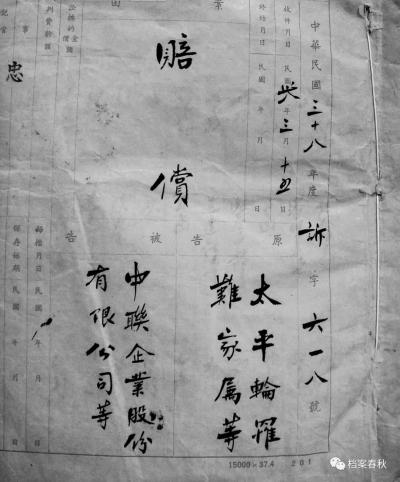 中華民國三十八年度訴字六一八號
收件月日民國卅八年三月十五日
終結月日民國 年 月 日
案由
賠償
訟標的金額價額
判費數額
記官
事
忠
原告
太平輪罹
難家属等
被告
中聯企業股份
有限公司等
歸檔月日民國 年 月 日
保存始期民國 年 月 日
15000×37.4 201
档案春秋